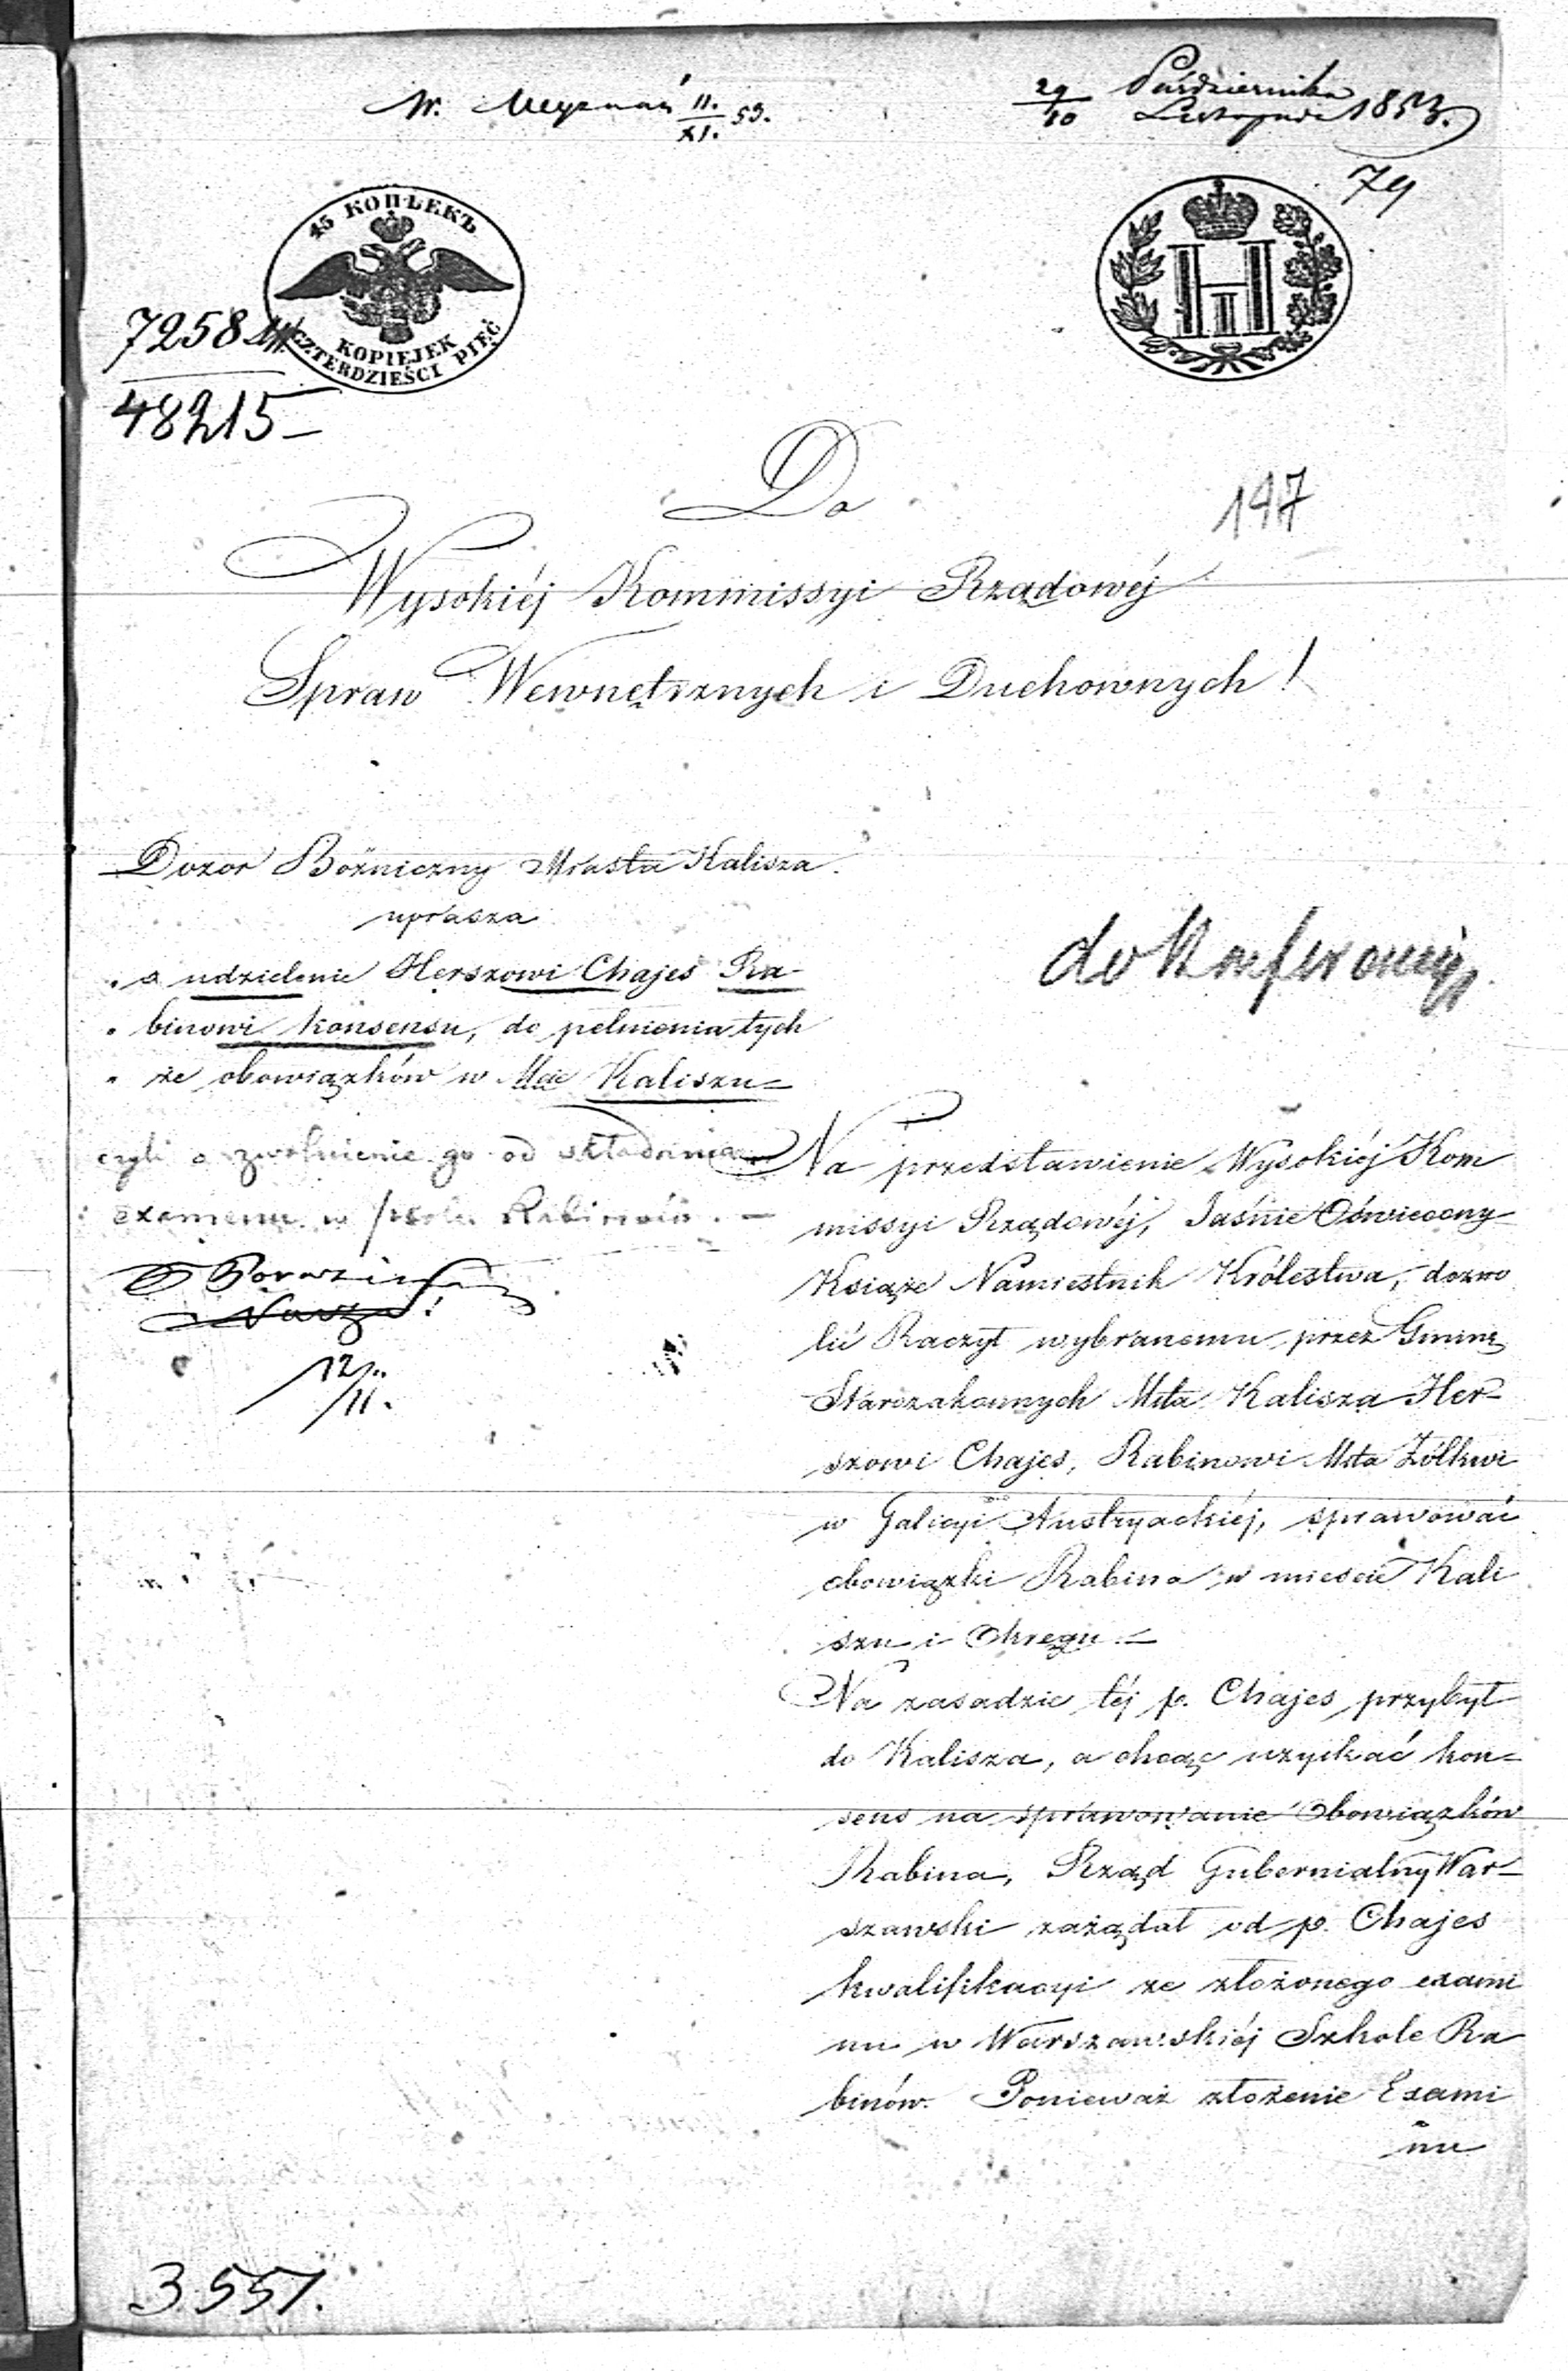 29/10 Października
Listopada 1853.
W. 11./XI. 53.
79
45 КОПѢЕКЪ
KOPIEJEK
CZTERDZIEŚCI PIĘĆ
H
7258
48215
Do
147
Wysokiéj Kommissyi Rządowéj
Spraw Wewnętrznych i Duchownych!
Dozor Bożniczny Miasta Kalisza
uprasza
o udzielenie Herszowi Chajes Ra-
binowi konsensu, do pełnienia tych
że obowiązków w Mcie Kaliszu
czyli o zwolnienie go od składania
examenu w szkole Rabinów. —
12/11.
do
Na przedstawienie Wysokiéj Kom
missyi Rządowéj, Jaśnie Oświecony
Książe Namiestnik Królestwa, dozwo
lić Raczył wybranemu przez Gminę
Starozakonnych Mta Kalisza Her-
szowi Chajes, Rabinowi Mta Żółkwi
w Galicyi Austryackiéj, sprawować
obowiązki Rabina w mieście Kali
szu i Okręgu.—
Na zasadzie téj p. Chajes przybył
do Kalisza, a chcąc uzyskać kon-
sens na sprawowanie Obowiązków
Rabina, Rząd Gubernialny War-
szawski zażądał od p. Chajes
kwalifikacyi ze złożonego exami
nu w Warszawskiéj Szkole Ra
binów. Ponieważ złożenie Exami
nu
3.551.